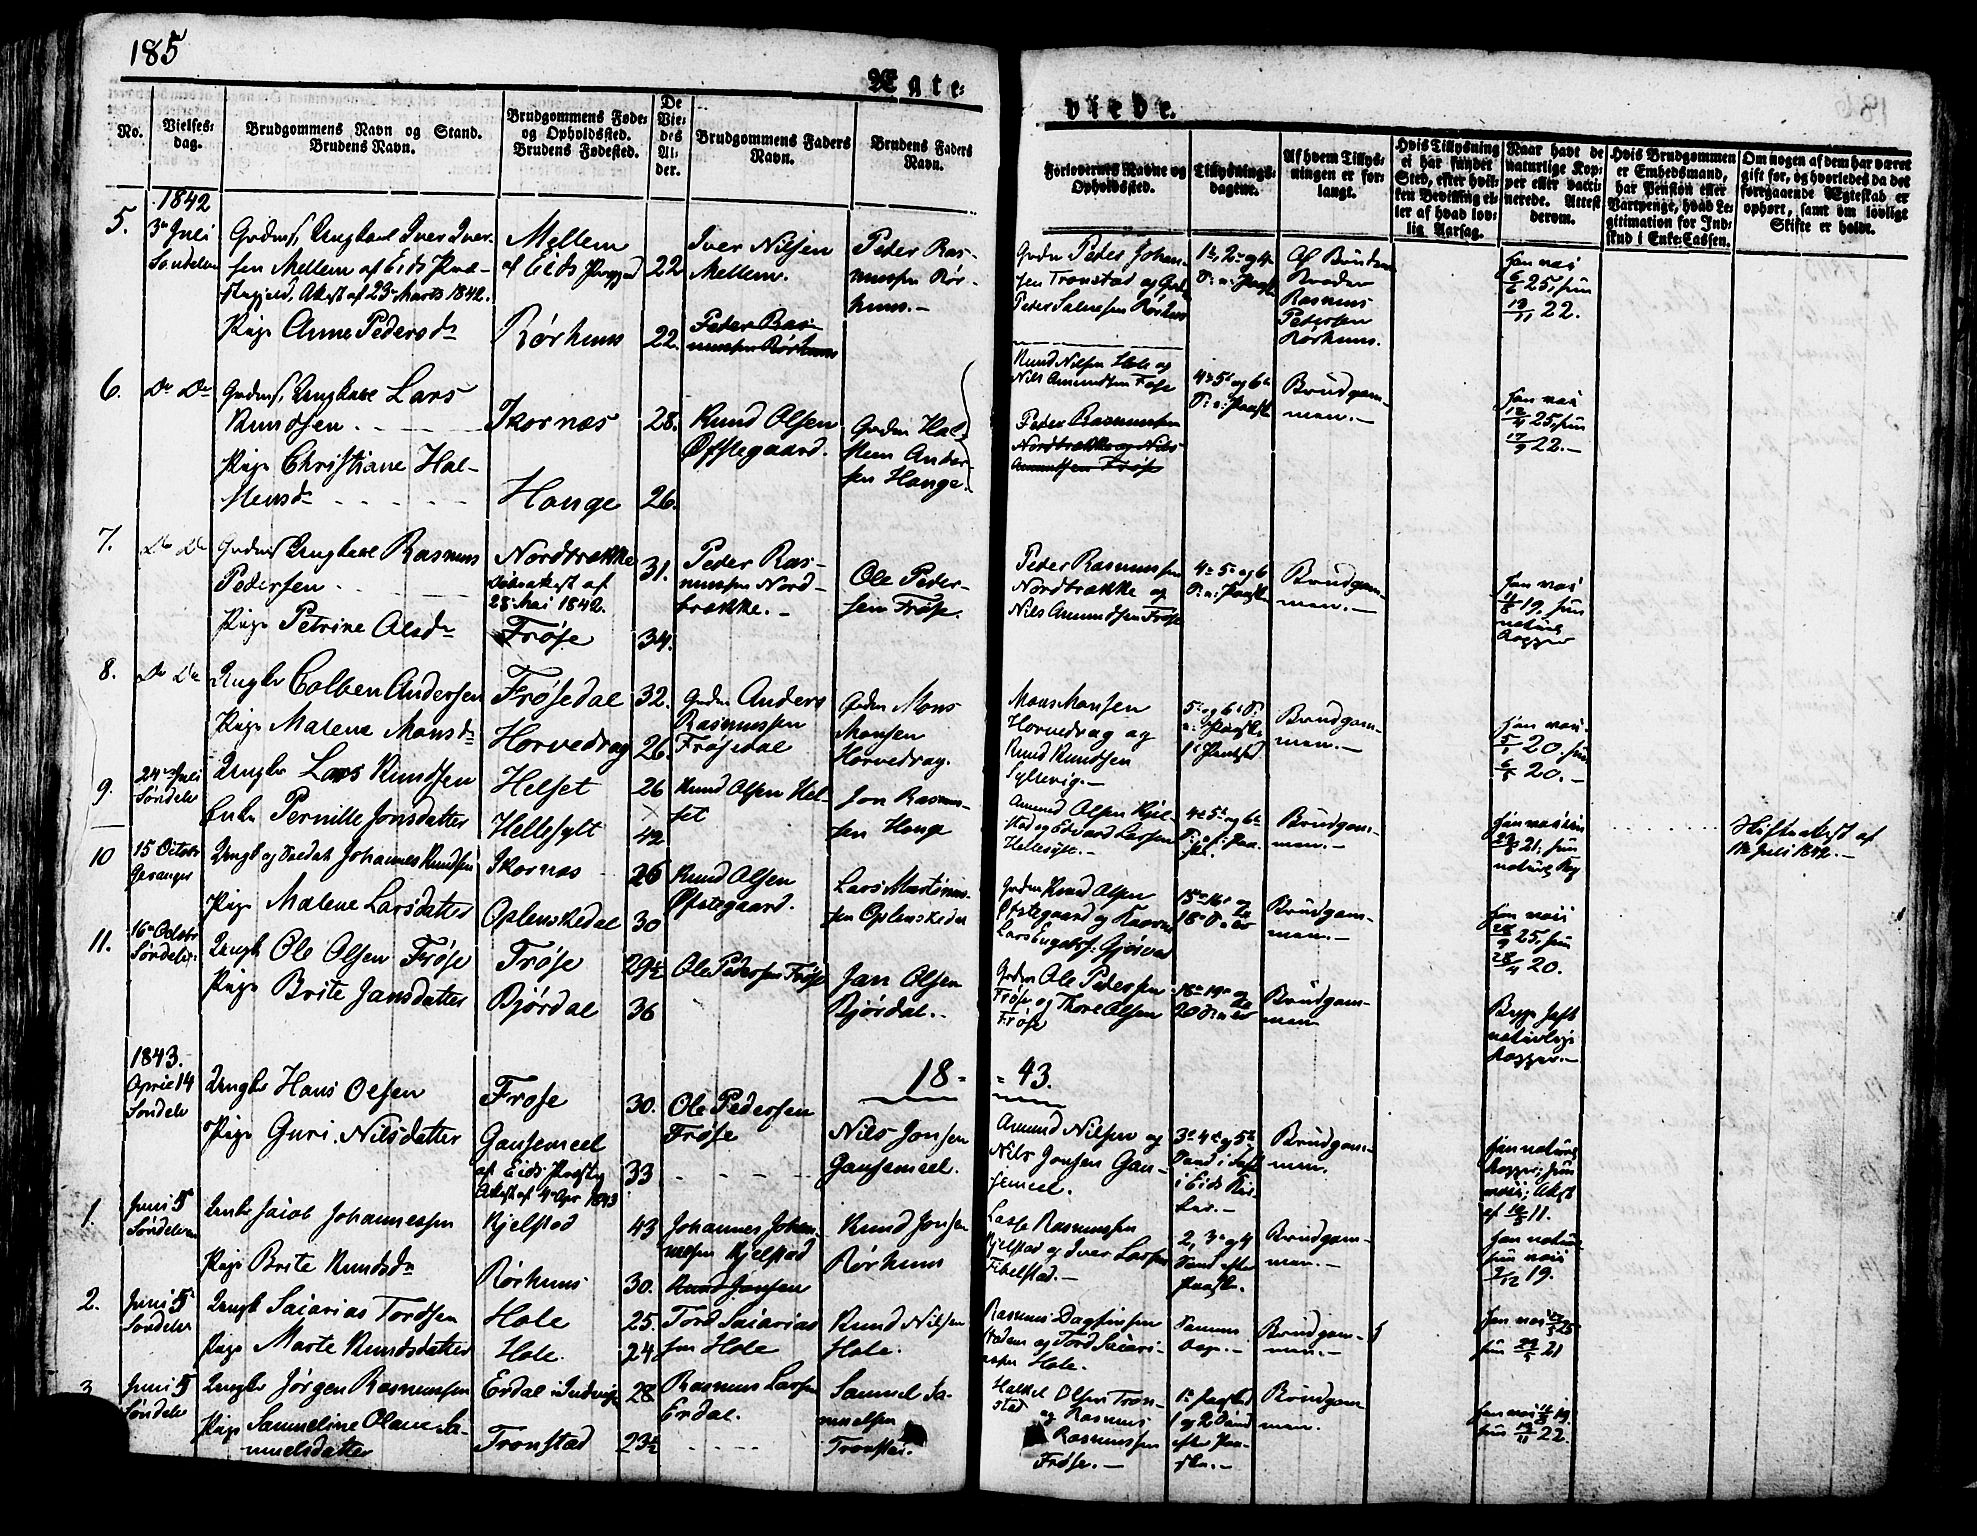 185
Ægte-
viede.
No.
Vielses-
dag.
Brudgommens Navn og Stand.
Brudens Navn.
Brudgommens Føde-
og Opholdssted.
Brudens Fødested.
De
Vie-
des
Al-
der.
Brudgommens Faders
Navn.
Brudens Faders
Navn.
Forlovernes Navne og
Opholdssted.
Tillysnings-
dagene.
Af hvem Tillys-
ningen er for-
langt.
Hvis Tillysning
ei har fundet
Sted, efter hvil-
ken Bevilling el-
ler af hvad lov-
lig Aarsag.
Naar havt de
naturlige Kop-
per eller vacci-
nerede. Attest
derom.
Hvis Brudgommen
er Embedsmand,
har Pension eller
Vartpenge, hvad Le-
gitimation for Ind-
skud i Enke-Cassen.
Om nogen af dem har været
gift før, og hvorledes da det
foregaaende Ægteskab er
ophørt, samt om lovligt
Skifte er holdt.
1842
5.
3 Juli
Søndelev
Ungkarl Iver Iver-
sen Mellem af Eids Præ-
stegjeld, Attest af 23 Marts 1842.
Pige Anne Pedersd
Mellem
af Eids Prgjd
Rørhuus
22
22.
Iver Nilsen
Mellem.
Peder Ras-
mussen Rørhuus
Peder Ras-
mussen Rør-
huus.-
Peder Johan-
sen Tronstad og
Peter Salmesen Rørhus
1, 2 og 4
Af Brudens
Broder
Rasmus
Petersen
Rørhuus.
han vac
6/6 25, hun
19/11 22.
6.
Do Do
Ungkarl Lars
Knudsen
Pige Christiane Hal-
stensd
Skornæs
Hauge
28.
26.
Knud Olsen
Øfstegaard.
Hal-
sten Ander-
sen Hauge.
Knud Nilsen Hole og
Nils Amundsen Frøse
Peder Rasmussen
Nordtrække og Nils
Amundsen Frøse
4 5 og 6
Brudgom-
men.-
han vac
12/4 25, hun
17/9 22.-
7.
Do Do
Ungkarl Rasmus
Pedersen
Pige Petrine Olsd
Nordtrække
Daabsattest af
28 Mai 1842.
Frøse
31.
34.
Peder Ras-
mussen Nord-
trække.-
Ole Peder-
sen Frøse.
Peder Rasmussen
Nordtrække og
Nils Amundsen Frøse
4 5 og 6
Brudgom-
men.-
han vac
11/8 19, hun
naturl
Kopper
8.
Do Do
Ungk Colben Andersen
Pige Malene Monsd
Frøsedal
Horvedrag
32.
26.
Anders
Rasmussen
Frøsedal
Mons
Monsen
Horvedrag.
Mons Monsen
Horvedrag og
Knud Knudsen
Syltevig.-
5 og 6
Brudgom-
men.-
han vac.
5/1 20. hun
6/8 20.-
9.
24 Juli
Søndelev
Ungk Lars Knudsen
Enke Pernille Jonsdatter
Helset
Hellesylt
26
42
Knud Olsen Hel-
set
Jon Rasmus-
sen Hauge
Amund Olsen Kjel-
stad og Edvard Larsen
Hellesylt.-
4 5 og 6
Brudgom-
men.-
21, hun
naturl Kop
Skifteattest af
Juli 1842.-
10
15 October
Geranger
Ungk og Soldat Johannes Knudsen
Pige Malene Larsdatter
Skornæs
Oplenskedal
26
30
Knud Olsen
Øfstegaard.
Lars Martinus-
sen Oplenskedal
Knud Olsen
Øfstegaard og
Lars Gjørvad
15 16 og
18
Brudgom-
men.-
han vac
28/9 25, hun
28/4 20.
11.
16 Octobr
Søndelev.
Ungk Ole Olsen Frøse
Pige Brite Jansdatter
Frøse
Bjørdal
29½
36
Ole Pedersen Frøse
Jan Olsen
Bjørdal.
Ole Pedersen
Frøse og Thore Olsen
Frøse
18 19 og
20
Brudgom-
men
Begge havt
naturlige
Kopper.-
18- -43.
1843.
April 14
Søndelv
Ungk Hans Olsen
Pige Guri Nilsdatter
Frøse
Gausemeel
af Eids Præstg
Attest af 4 Apr 1843
30.
33
Ole Pedersen
Frøse
Nils Jonsen
Gausemeel.
Amund Nilsen og
Nils Jonsen Gau-
semeel.
3 4 og 5
Brudgom-
men.
han naturl
Kopper; hun
vac; Attest
af 11.
1.
Juni 5
Søndelven
Enke Jacob Johannessen
Pige Brite Knudsd
Kjelstad
Rørhuus
43
30.
Johannes Johan-
nesen Kjelstad
Knud Jonsen
Knud Jonsen
Rørhuus
Lasse Rasmussen
Kjelstad og Iver Larsen
Fibelstad.-
2, 3 og 4
Sønd efter
Paaske.
Brudgom-
men.-
han natur
hun vac
2/12 19.
2.
Juni 5
Søndelv
Ungk Saiarias Tordsen
Pige Marte Knudsdatter
Hole
Hole.
25.
24
Tord Saiarias
sen Hole
Knud Nilsen
Hole.
Rasmus Dagfinsen
Staden og Tord Saiari-
assen Hole.
Samme
Dage.-
Brudgom-
men.-
han vac 25
hun 21
3.
Juni 5
Søndelv
Ungk Jørgen Rasmussen
Pige Samueline Oline Sa-
muelsdatter
Erdal i Indvigs
Tronstad
28
23½
Rasmus Larsen
Erdal.
Samuel Sa-
muelsen
Tronstad.
Halkel Olsen Tron-
stad
og Rasmus
Rasmussen
Frøse.-
1 Paaskd
1 og 2 Sønd
efter Paa-
sken.-
Brudgom
men.
han vac 19.
hun 19/11 22.